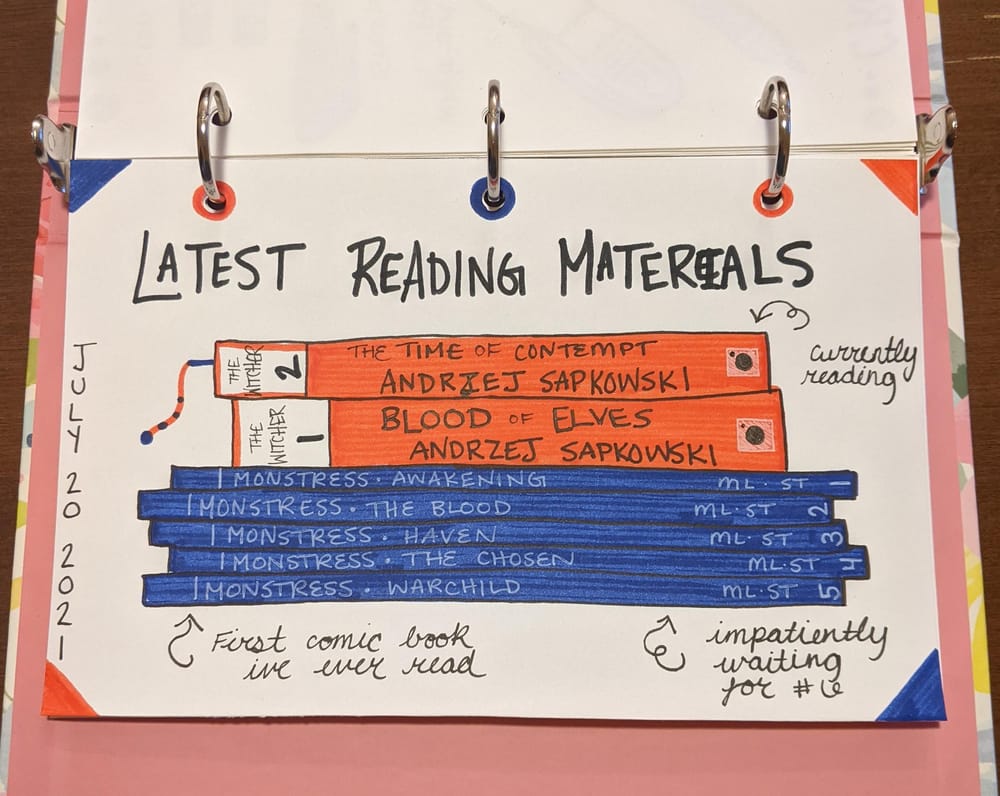 LATEST READING MATERIALS
currently
reading
THE WITCHER 2
THE TIME OF CONTEMPT
ANDRZEJ SAPKOWSKI
THE WITCHER 1
BLOOD OF ELVES
ANDRZEJ SAPKOWSKI
MONSTRESS · AWAKENING ML·ST 1
MONSTRESS · THE BLOOD ML·ST 2
MONSTRESS · HAVEN ML·ST 3
MONSTRESS · THE CHOSEN ML·ST 4
MONSTRESS · WARCHILD ML·ST 5
JULY 20 2021
First comic book
ive ever read
impatiently
waiting
for #6